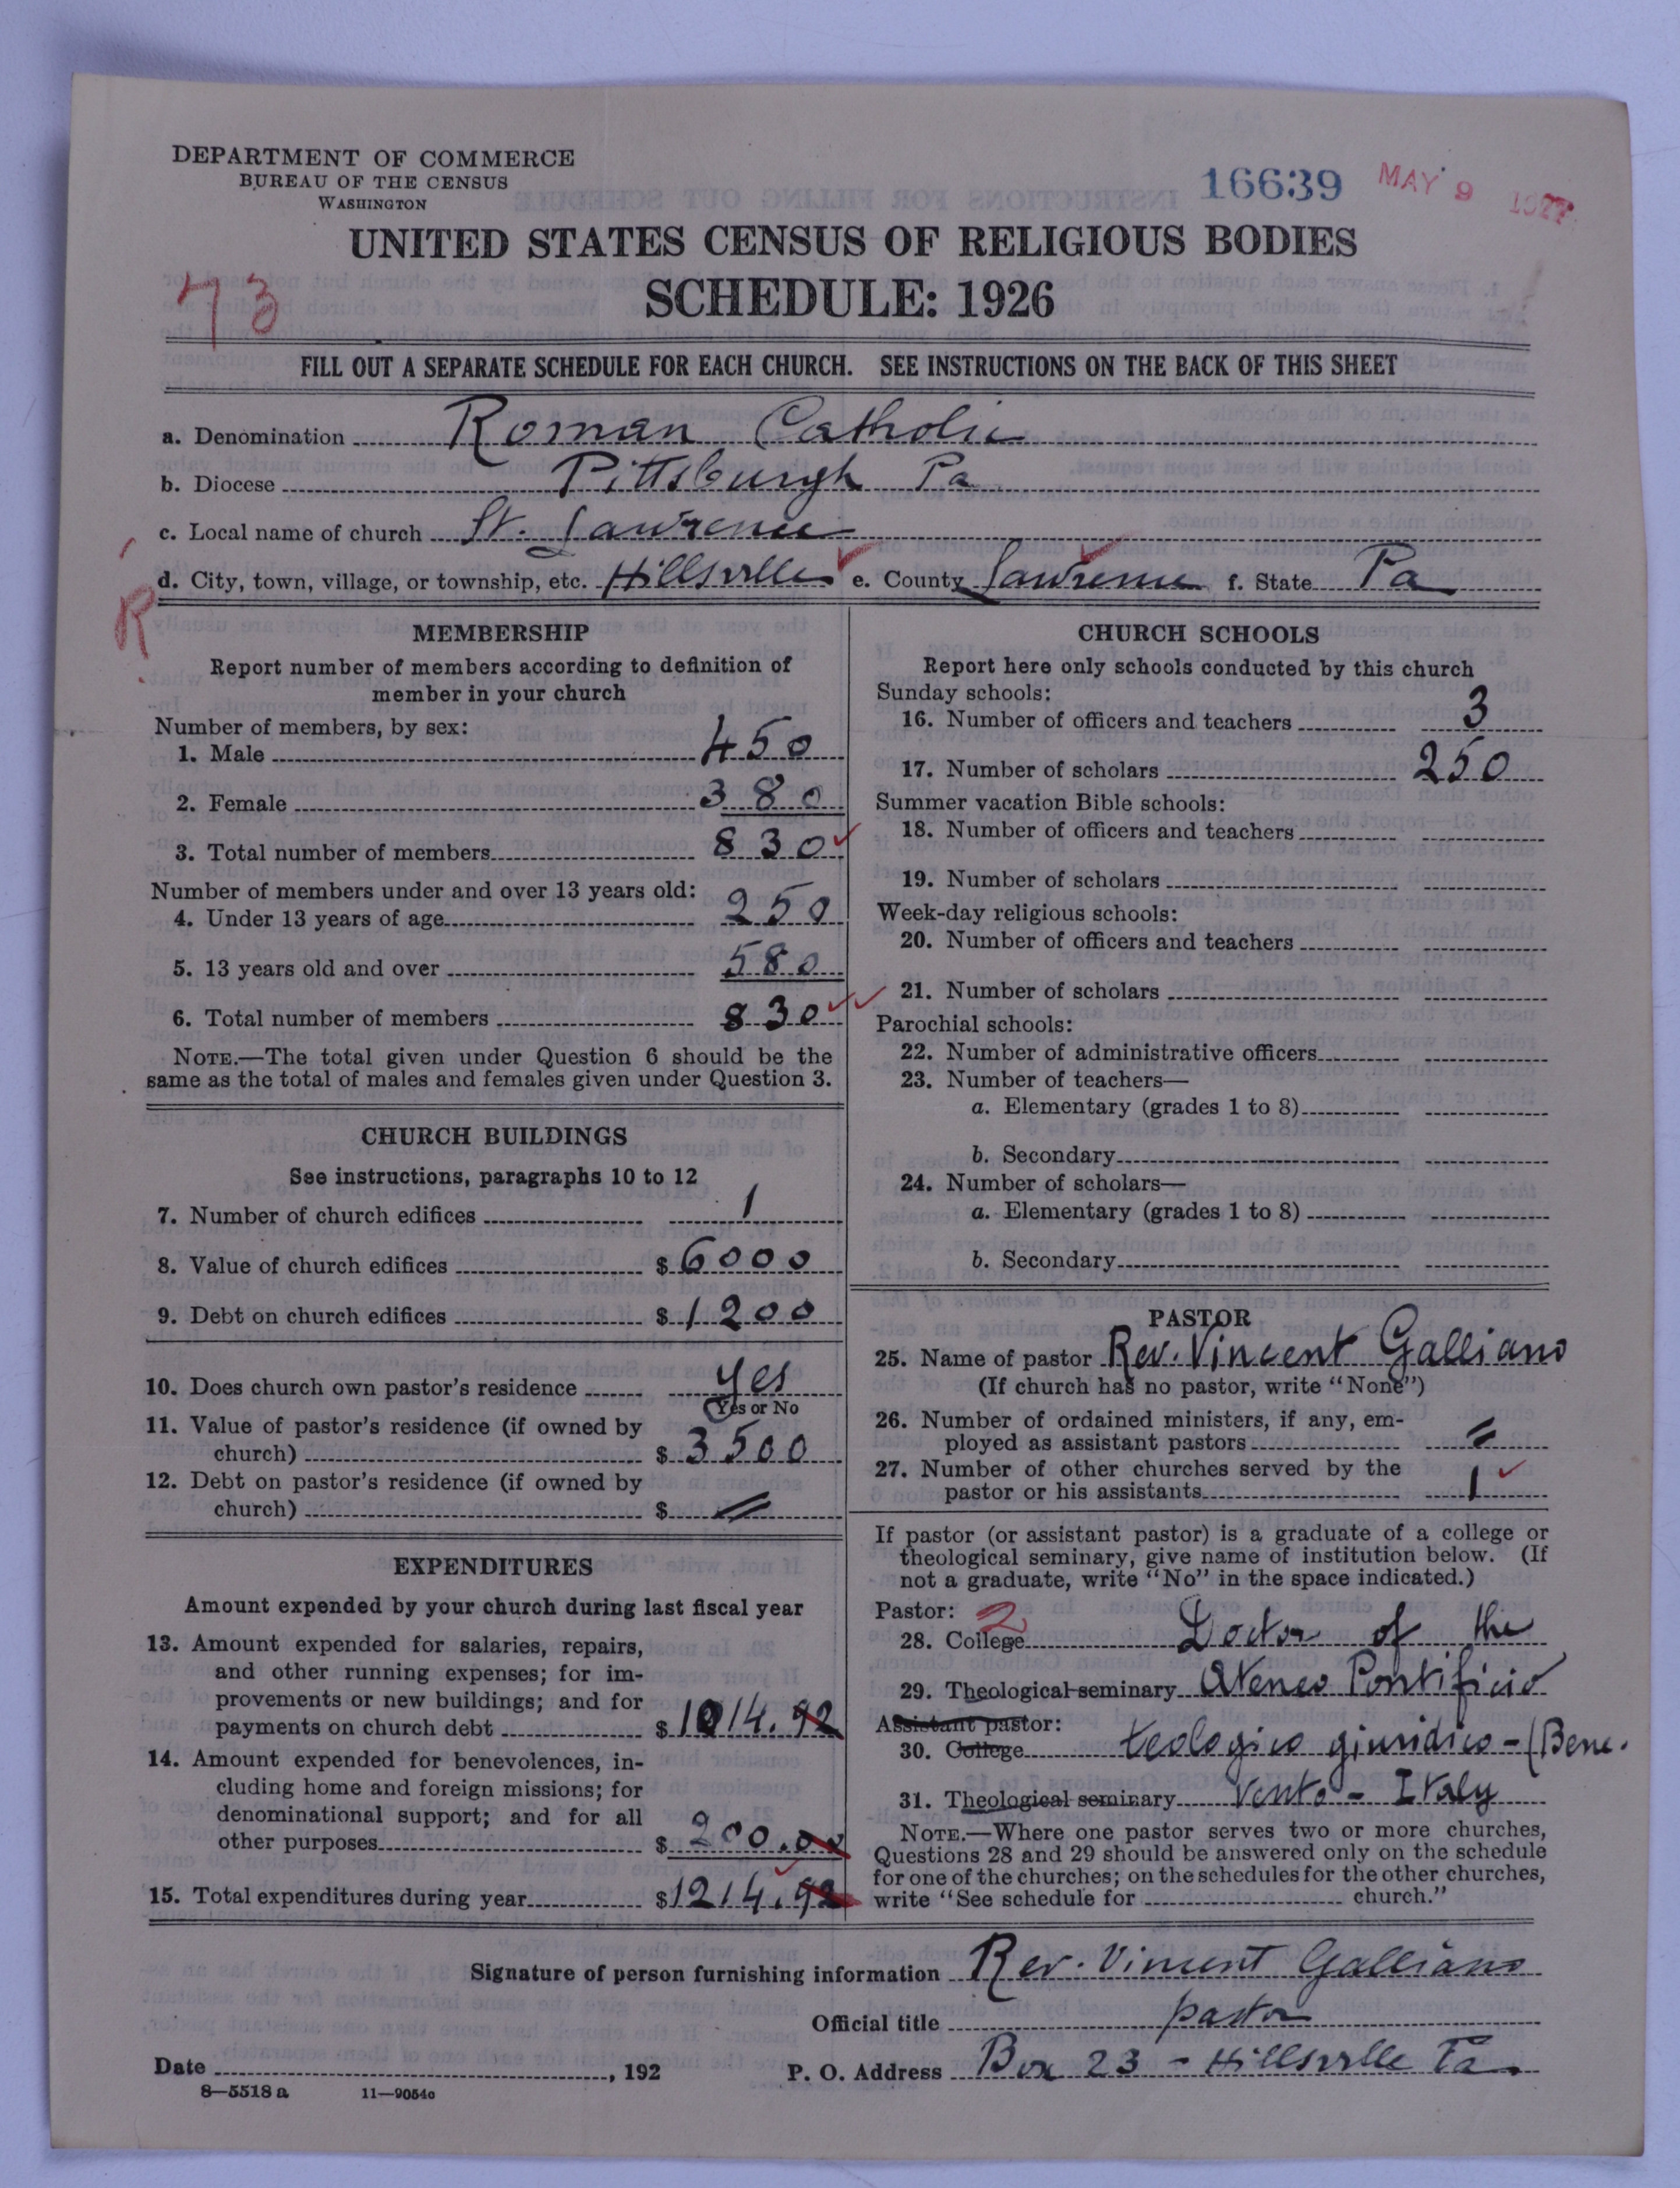 DEPARTMENT OF COMMERCE
BUREAU OF THE CENSUS
WASHINGTON
16639
MAY 9 1927
UNITED STATES CENSUS OF RELIGIOUS BODIES
SCHEDULE: 1926
73
FILL OUT A SEPARATE SCHEDULE FOR EACH CHURCH. SEE INSTRUCTIONS ON THE BACK OF THIS SHEET
a. Denomination Roman Catholic
b. Diocese Pittsburgh Pa
c. Local name of church St. Lawrence
d. City, town, village, or township, etc. Hillsville e. County Lawrence f. State Pa
R
MEMBERSHIP
Report number of members according to definition of
member in your church
Number of members, by sex:
1. Male 450
2. Female 380
3. Total number of members 830
Number of members under and over 13 years old:
4. Under 13 years of age 250
5. 13 years old and over 580
6. Total number of members 830
NOTE.—The total given under Question 6 should be the
same as the total of males and females given under Question 3.
CHURCH BUILDINGS
See instructions, paragraphs 10 to 12
7. Number of church edifices 1
8. Value of church edifices $ 6000
9. Debt on church edifices $ 1200
10. Does church own pastor's residence yes
Yes or No
11. Value of pastor's residence (if owned by
church) $ 3500
12. Debt on pastor's residence (if owned by
church) $ =
EXPENDITURES
Amount expended by your church during last fiscal year
13. Amount expended for salaries, repairs,
and other running expenses; for im-
provements or new buildings; and for
payments on church debt $ 1014.92
14. Amount expended for benevolences, in-
cluding home and foreign missions; for
denominational support; and for all
other purposes $ 200.00
15. Total expenditures during year $ 1214.92
CHURCH SCHOOLS
Report here only schools conducted by this church
Sunday schools:
16. Number of officers and teachers 3
17. Number of scholars 250
Summer vacation Bible schools:
18. Number of officers and teachers
19. Number of scholars
Week-day religious schools:
20. Number of officers and teachers
21. Number of scholars
Parochial schools:
22. Number of administrative officers
23. Number of teachers—
a. Elementary (grades 1 to 8)
b. Secondary
24. Number of scholars—
a. Elementary (grades 1 to 8)
b. Secondary
PASTOR
25. Name of pastor Rev. Vincent Galliano
(If church has no pastor, write "None")
26. Number of ordained ministers, if any, em-
ployed as assistant pastors =
27. Number of other churches served by the
pastor or his assistants 1
If pastor (or assistant pastor) is a graduate of a college or
theological seminary, give name of institution below. (If
not a graduate, write "No" in the space indicated.)
Pastor: 2
28. College Doctor of the
29. Theological seminary Ateneo Pontificio
Assistant pastor:
30. College teologico giuridico - (Bene.
31. Theological seminary vento - Italy
NOTE.—Where one pastor serves two or more churches,
Questions 28 and 29 should be answered only on the schedule
for one of the churches; on the schedules for the other churches,
write "See schedule for church."
Signature of person furnishing information Rev. Vincent Galliano
Official title pastor
Date , 192 P. O. Address Box 23 - Hillsville Pa.
8—5518 a 11—9054c